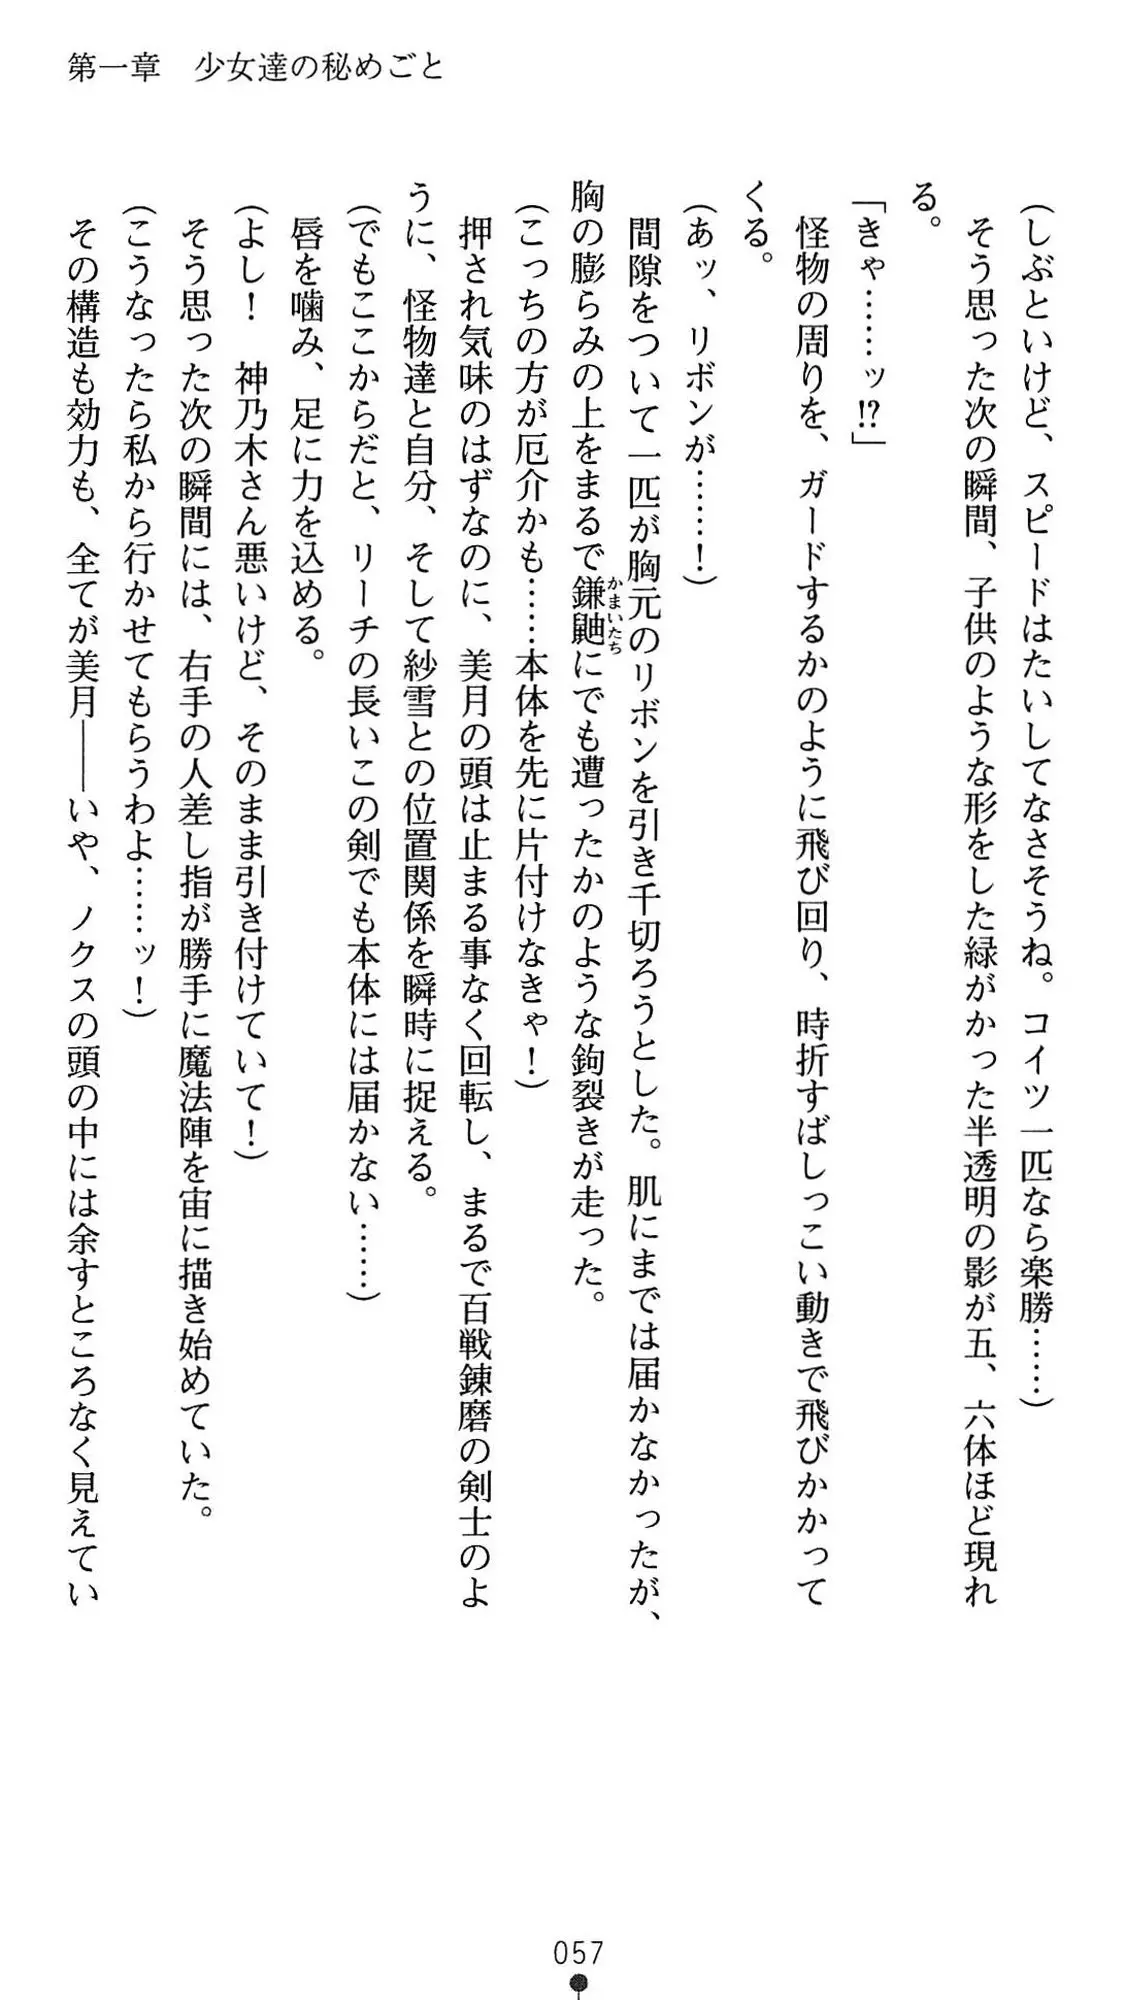 第一章　少女達の秘めごと
（しぶといけど、スピードはたいしてなさそうね。コイツ一匹なら楽勝……）
　そう思った次の瞬間、子供のような形をした緑がかった半透明の影が五、六体ほど現れ
る。
「きゃ……ッ!?」
　怪物の周りを、ガードするかのように飛び回り、時折すばしっこい動きで飛びかかって
くる。
（あッ、リボンが……！）
　間隙をついて一匹が胸元のリボンを引き千切ろうとした。肌にまでは届かなかったが、
胸の膨らみの上をまるで鎌鼬にでも遭ったかのような鉤裂きが走った。
かまいたち
（こっちの方が厄介かも……本体を先に片付けなきゃ！）
　押され気味のはずなのに、美月の頭は止まる事なく回転し、まるで百戦錬磨の剣士のよ
うに、怪物達と自分、そして紗雪との位置関係を瞬時に捉える。
（でもここからだと、リーチの長いこの剣でも本体には届かない……）
　唇を噛み、足に力を込める。
（よし！　神乃木さん悪いけど、そのまま引き付けていて！）
　そう思った次の瞬間には、右手の人差し指が勝手に魔法陣を宙に描き始めていた。
（こうなったら私から行かせてもらうわよ……ッ！）
　その構造も効力も、全てが美月――いや、ノクスの頭の中には余すところなく見えてい
057